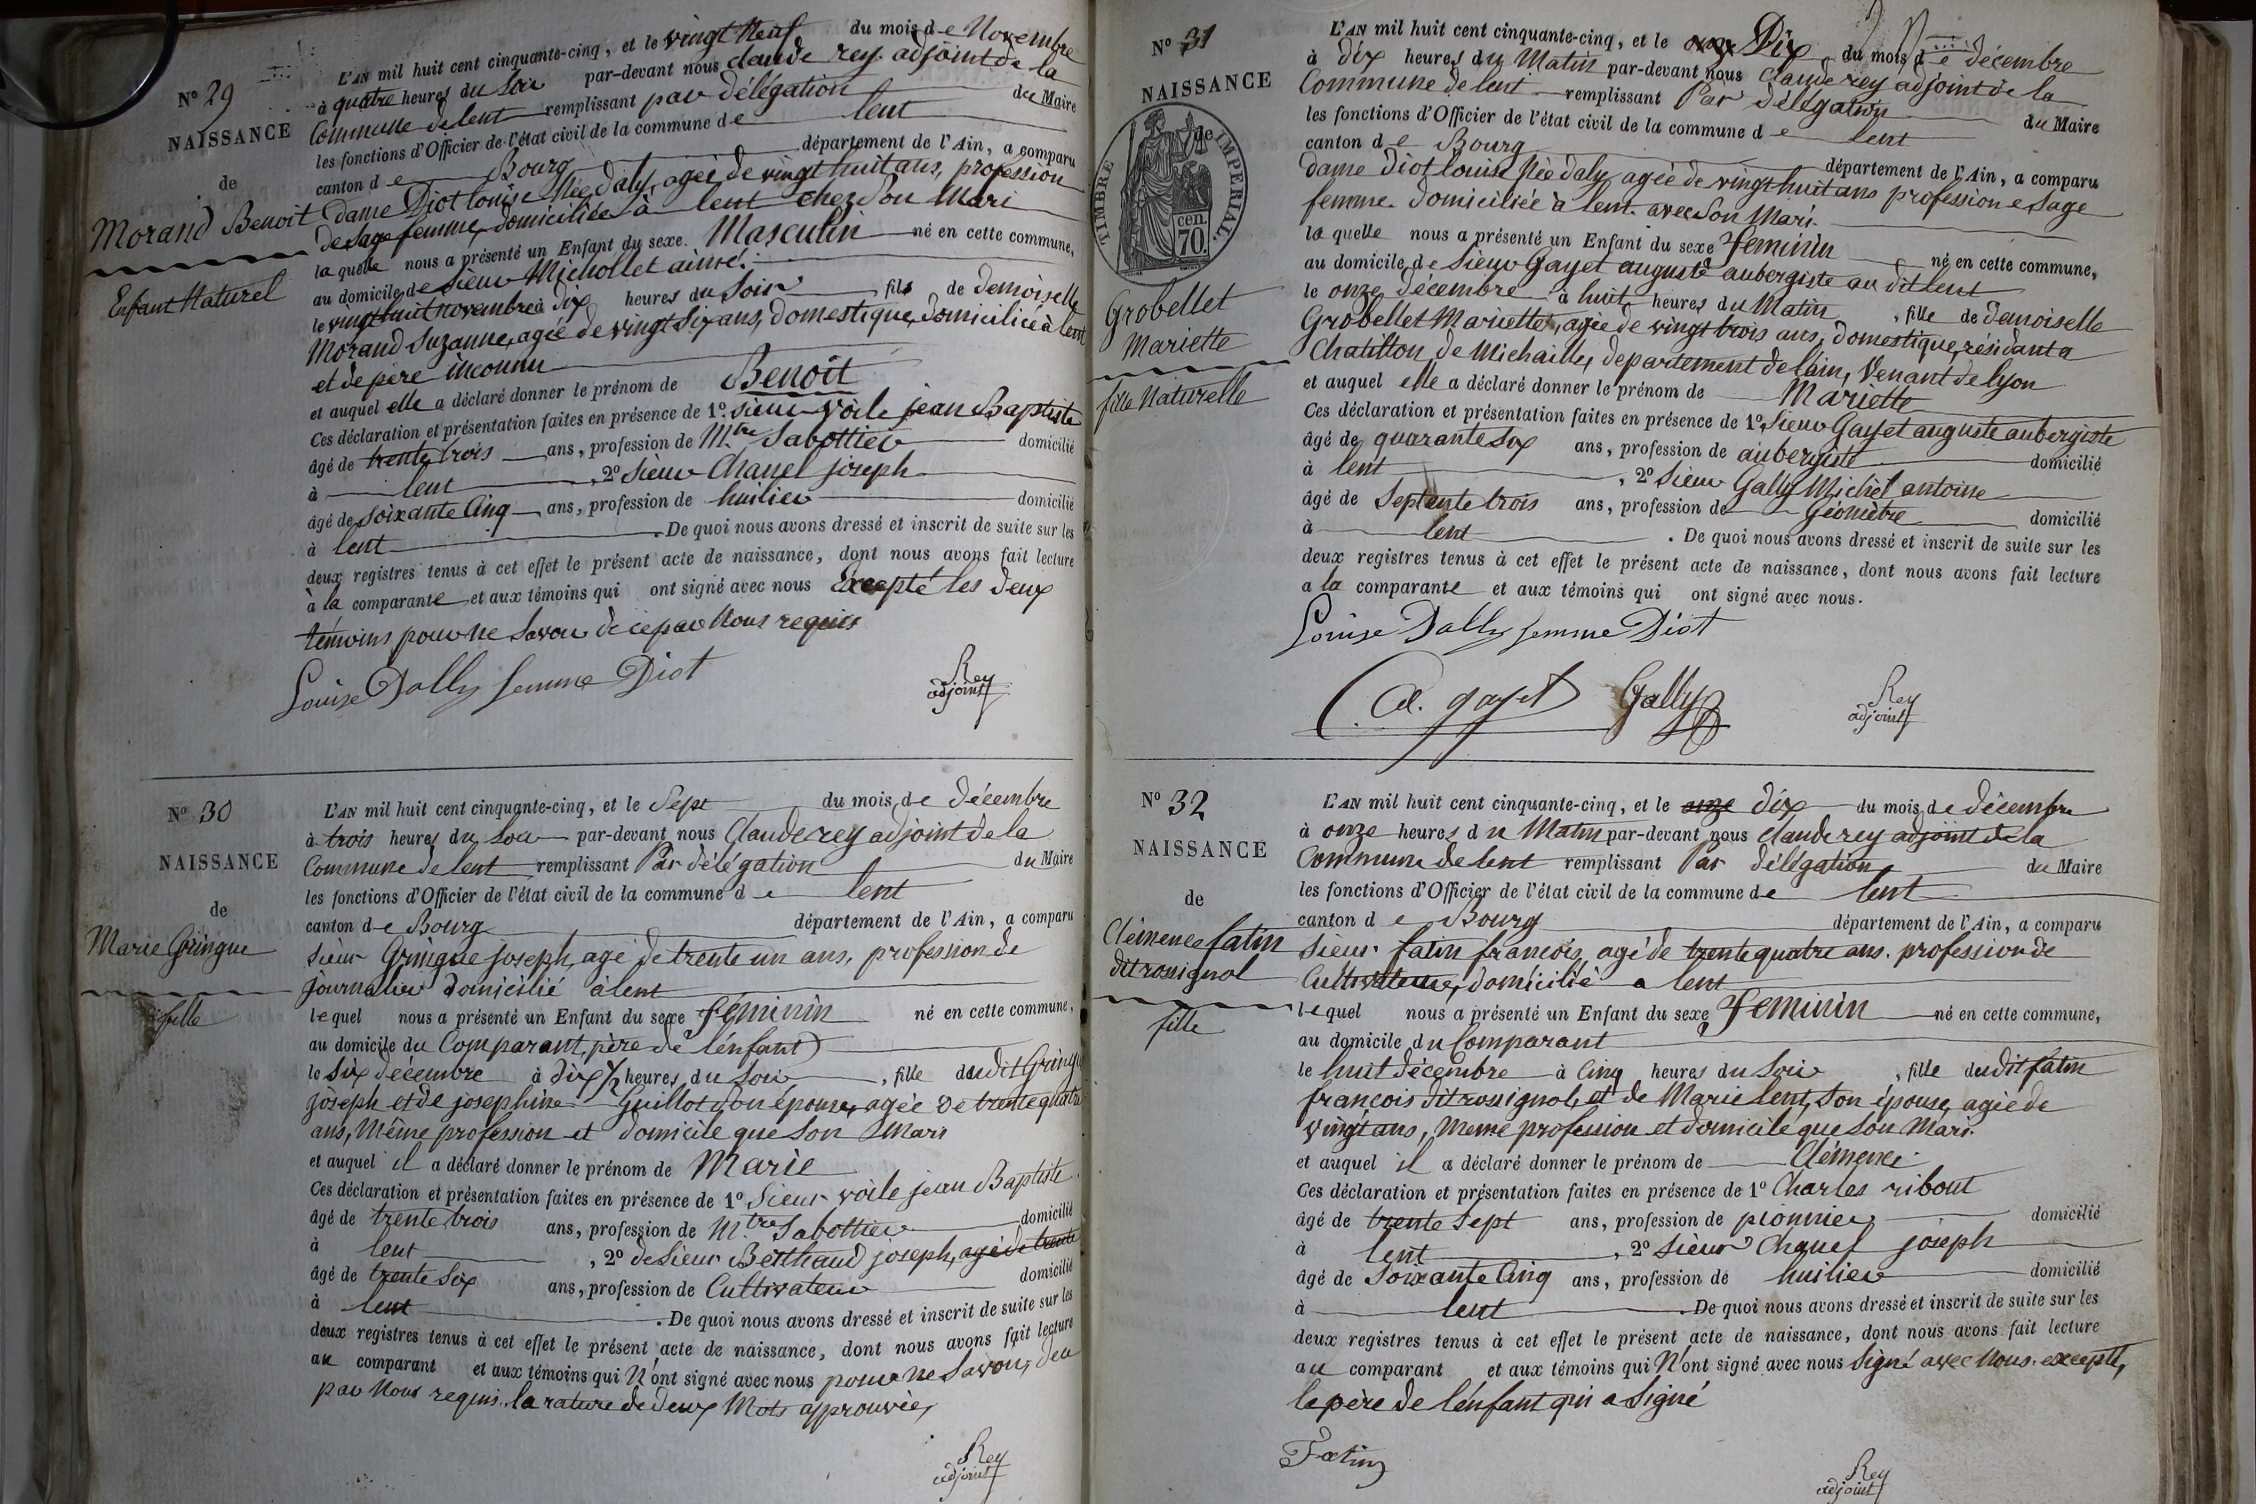 N° 29
NAISSANCE
de
Morand Benoit
Enfant Naturel
L'AN mil huit cent cinquante-cinq, et le vingt Neuf du mois de Novembre
à quatre heures du Soir par-devant nous Claude rey adjoint de la
Commune de lent remplissant par délégation du Maire
les fonctions d'Officier de l'état civil de la commune de lent
canton de Bourg département de l'Ain, a comparu
dame Diot louise Née daly, agée de vingt huit ans, profession
de sage femme, domiciliée à lent chez Son Mari
la quelle nous a présenté un Enfant du sexe Masculin né en cette commune,
au domicile de Sieur Michollet aimé.
le vingt huit novembre à dix heures du Soir fils de demoiselle
Morand Suzanne, agée de vingt Six ans, domestique, domiciliée à lent
et de père inconnu
et auquel elle a déclaré donner le prénom de Benoit
Ces déclaration et présentation faites en présence de 1° Sieur voile jean Baptiste
âgé de trente trois ans, profession de M.tre Sabottier domicilié
à lent, 2° Sieur Chanel joseph
âgé de Soixante Cinq ans, profession de huilier domicilié
à lent. De quoi nous avons dressé et inscrit de suite sur les
deux registres tenus à cet effet le présent acte de naissance, dont nous avons fait lecture
à la comparante et aux témoins qui ont signé avec nous Excepté les deux
témoins pour ne Savoir de ce par Nous requis
Louise Dally femme Diot
Rey
adjoint
N° 30
NAISSANCE
de
Marie Gringue
fille
L'AN mil huit cent cinquante-cinq, et le Sept du mois de décembre
à trois heures du Soir par-devant nous Claude rey adjoint de la
Commune de lent remplissant Par délégation du Maire
les fonctions d'Officier de l'état civil de la commune de lent
canton de Bourg département de l'Ain, a comparu
Sieur Gringue joseph, agé de trente un ans, profession de
journalier domicilié à lent
lequel nous a présenté un Enfant du sexe féminin né en cette commune,
au domicile du Comparant, père de l'enfant
le Six décembre à dix 1/2 heures du Soir, fille dudit Gringue
joseph et de josephine Guillot Son épouse, agée de trente quatre
ans, Même profession et domicile que Son Mari
et auquel il a déclaré donner le prénom de Marie
Ces déclaration et présentation faites en présence de 1° Sieur voile jean Baptiste
âgé de trente trois ans, profession de M.tre Sabottier domicilié
à lent, 2° de Sieur Berthaud joseph, agé de trente
âgé de trente Six ans, profession de Cultivateur domicilié
à lent. De quoi nous avons dressé et inscrit de suite sur les
deux registres tenus à cet effet le présent acte de naissance, dont nous avons fait lecture
au comparant et aux témoins qui N'ont signé avec nous pour ne Savoir, de ce
par Nous requis. la rature de deux Mots approuvée,
Rey
adjoint
N° 31
NAISSANCE
de
TIMBRE IMPERIAL.
70. cen.
Grobellet
Mariette
fille Naturelle
L'AN mil huit cent cinquante-cinq, et le onze Dix du mois de décembre
à dix heures du Matin par-devant nous Claude rey adjoint de la
Commune de lent remplissant Par délégation du Maire
les fonctions d'Officier de l'état civil de la commune de lent
canton de Bourg département de l'Ain, a comparu
dame Diot louise Née daly, agée de vingt huit ans profession e Sage
femme domiciliée à lent avec Son Mari
la quelle nous a présenté un Enfant du sexe feminin né en cette commune,
au domicile de Sieur Gayet auguste aubergiste au dit lent
le onze décembre à huit heures du Matin, fille de demoiselle
Grobellet Mariette, agée de vingt trois ans, domestique, résidant a
Chatillon de Michaille, departement de lain, Venant de lyon
et auquel elle a déclaré donner le prénom de Mariette
Ces déclaration et présentation faites en présence de 1° Sieur Gayet auguste aubergiste
âgé de quarante Six ans, profession de aubergiste domicilié
à lent, 2° Sieur Gally Michel antoine
âgé de Septente trois ans, profession de Géomètre domicilié
à lent. De quoi nous avons dressé et inscrit de suite sur les
deux registres tenus à cet effet le présent acte de naissance, dont nous avons fait lecture
a la comparante et aux témoins qui ont signé avec nous.
Louise Dally femme Diot
A. gayet Gally
Rey
adjoint
N° 32
NAISSANCE
de
Clémence fatin
dit rossignol
fille
L'AN mil huit cent cinquante-cinq, et le onze dix du mois de décembre
à onze heures du Matin par-devant nous Claude rey adjoint de la
Commune de lent remplissant Par délégation du Maire
les fonctions d'Officier de l'état civil de la commune de lent
canton de Bourg département de l'Ain, a comparu
Sieur fatin francois, agé de trente quatre ans. profession de
Cultivateur, domicilié a lent
lequel nous a présenté un Enfant du sexe feminin né en cette commune,
au domicile du Comparant
le huit décembre à Cinq heures du Soir, fille dudit fatin
françois dit rossignol, et de Marie lent, Son épouse, agée de
vingt ans, Meme profession et domicile que Son Mari.
et auquel il a déclaré donner le prénom de Clémence
Ces déclaration et présentation faites en présence de 1° Charles ribout
âgé de trente Sept ans, profession de pionnier domicilié
à lent, 2° Sieur Chanel joseph
âgé de Soixante Cinq ans, profession de huilier domicilié
à lent. De quoi nous avons dressé et inscrit de suite sur les
deux registres tenus à cet effet le présent acte de naissance, dont nous avons fait lecture
au comparant et aux témoins qui N'ont signé avec nous Signé avec Nous. excepté,
le père de l'enfant qui a Signé
Fatin
Rey
adjoint